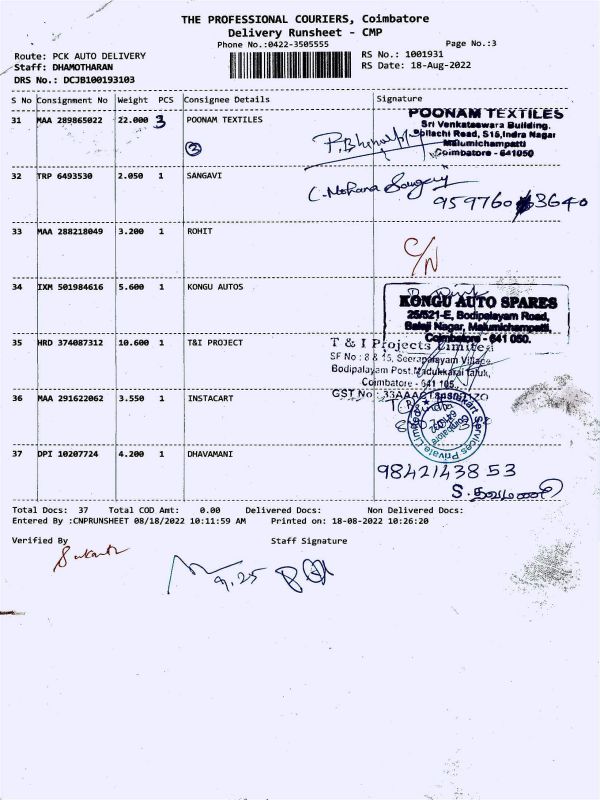 THE PROFESSIONAL COURIERS, Coimbatore
Delivery Runsheet - CMP
Phone No.:0422-3505555
Page No.:3
Route: PCK AUTO DELIVERY
RS No.: 1001931
Staff: DHAMOTHARAN
RS Date: 18-Aug-2022
DRS No.: DCJB100193103
S No Consignment No Weight PCS Consignee Details Signature
31 MAA 289865022 22.000 3 POONAM TEXTILES
3
POONAM TEXTILES
Sri Venkateswara Building,
Pollachi Road, S15,Indra Nagar
Malumichampatti
Coimbatore - 641050
32 TRP 6493530 2.050 1 SANGAVI
C. Mohana Sangavy
959760 3640
33 MAA 288218049 3.200 1 ROHIT
C/N
34 IXM 501984616 5.600 1 KONGU AUTOS
KONGU AUTO SPARES
25/521-E, Bodipalayam Road,
Balaji Nagar, Malumichampatti,
Coimbatore - 641 050.
35 HRD 374087312 10.600 1 T&I PROJECT
T & I Projects Limited
SF No : 8 & 15, Seerapalayam Village
Bodipalayam Post, Madukkarai taluk,
Coimbatore - 641 105.
GST No
36 MAA 291622062 3.550 1 INSTACART
37 DPI 10207724 4.200 1 DHAVAMANI
9842143853
S. தவமணி
Total Docs: 37 Total COD Amt: 0.00 Delivered Docs: Non Delivered Docs:
Entered By :CNPRUNSHEET 08/18/2022 10:11:59 AM Printed on: 18-08-2022 10:26:20
Verified By
Staff Signature
9.25